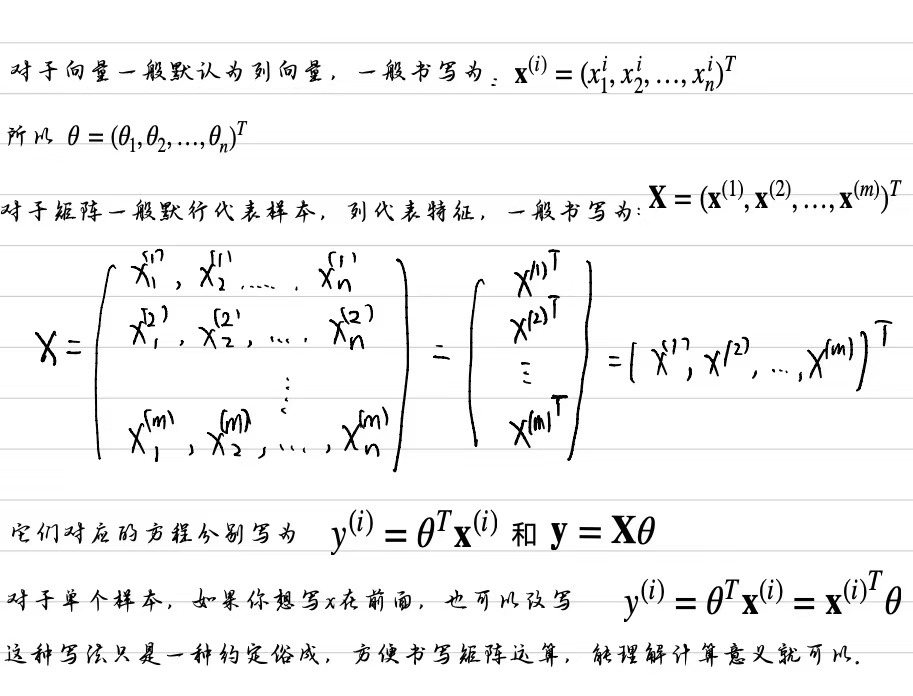 对于向量一般默认为列向量，一般书写为：x^(i) = (x_1^i, x_2^i, …, x_n^i)^T
所以 θ = (θ_1, θ_2, …, θ_n)^T
对于矩阵一般默行代表样本，列代表特征，一般书写为：X = (x^(1), x^(2), …, x^(m))^T
X = ( x_1^(1), x_2^(1) ……, x_n^(1) ; x_1^(2), x_2^(2), …, x_n^(2) ; ⋮ ; x_1^(m), x_2^(m), …, x_n^(m) ) = ( x^(1)T ; x^(2)T ; ⋮ ; x^(m)T ) = [ x^(1), x^(2), …, x^(m) ]^T
它们对应的方程分别写为 y^(i) = θ^T x^(i) 和 y = Xθ
对于单个样本，如果你想写x在前面，也可以改写 y^(i) = θ^T x^(i) = x^(i)T θ
这种写法只是一种约定俗成，方便书写矩阵运算，能理解计算意义就可以.